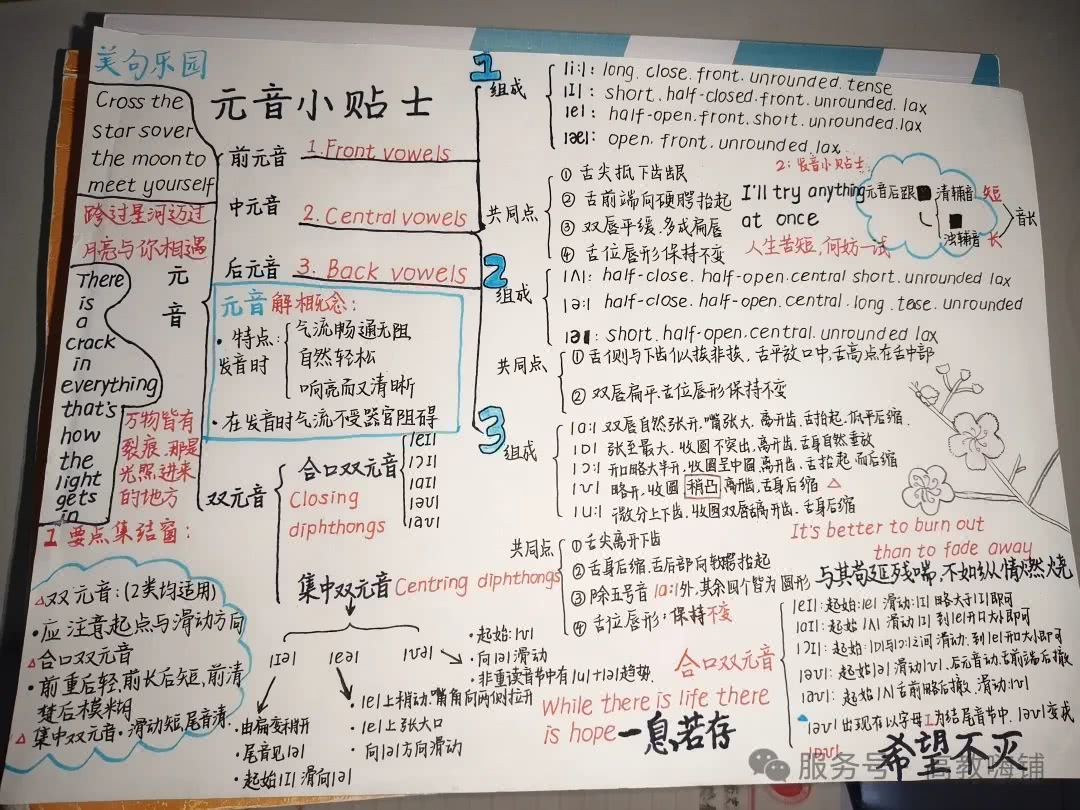 美句乐园
Cross the
star sover
the moon to
meet yourself
跨过星河迈过
月亮与你相遇
There
is
a
crack
in
everything
that's
how
the
light
gets
in
万物皆有
裂痕.那是
光照进来
的地方
元音小贴士
元
音
前元音 1.Front vowels
中元音 2. Central vowels
后元音 3. Back vowels
元音解相概念:
• 特点:
发音时
气流畅通无阻
自然轻松
响亮而又清晰
• 在发音时气流不受器官阻碍
1
组成
|i:|: long. close. front. unrounded. tense
|I|: short. half-closed. front. unrounded. lax
|e|: half-open. front. short. unrounded. lax
|æ|: open. front. unrounded. lax
共同点
① 舌尖抵下齿龈
② 舌前端向硬腭抬起
③ 双唇平缓.多成扁唇
④ 舌位唇形保持不变
2: 发音小贴士
I'll try anything
at once
人生苦短,何妨一试
元音后跟
清辅音 短
浊辅音 长
音长
2
组成
|ʌ|: half-close. half-open. central short. unrounded lax
|ɜ:| half-close. half-open. central. long. tease. unrounded
|ə|: short. half-open. central. unrounded lax
共同点
① 舌侧与下齿似挨非挨,舌平放口中,舌高点在舌中部
② 双唇扁平.舌位唇形保持不变
3
组成
|ɑ:| 双唇自然张开.嘴张大.离开齿.舌抬起.低平后缩.
|ɒ| 张至最大.收圆不突出,离开齿.舌身自然垂放
|ɔ:| 开口略大半开.收圆呈中圆,离开齿.舌抬起而后缩
|ʊ| 略开,收圆 稍凸 离开齿,舌身后缩 △
|u:| 微分上下齿.收圆双唇离开齿.舌身后缩
共同点
① 舌尖离开下齿
② 舌身后缩.舌后部向软腭抬起
③ 除五号音|ɑ:|外,其余四个皆为圆形
④ 舌位唇形:保持不变
It's better to burn out
than to fade away
与其苟延残喘,不如纵情燃烧
双元音
合口双元音
Closing
diphthongs
|eI|
|ɔI|
|aI|
|əʊ|
|aʊ|
集中双元音 Centring diphthongs
|Iə| |eə| |ʊə|
• 由扁变稍开
• 尾音见|ə|
• 起始|I|滑向|ə|
• |e|上稍动.嘴角向两侧拉开
• |e|上张大口
• 向|ə|方向滑动
• 起始:|ʊ|
• 向|ə|滑动
• 非重读音节中有|u|+|ə|趋势.
1 要点集结窗:
△双元音:(2类均适用)
• 应注意起点与滑动方向
△合口双元音
• 前重后轻,前长后短,前清
楚后模糊
△集中双元音.滑动短,尾音清.
合口双元音
|eI|: 起始:|e| 滑动:|I| 略大于|I|即可
|aI|: 起始|ʌ| 滑动|I| 到|e|开口大小即可
|ɔI|: 起始:|ɒ|与|ɔ:|之间 滑动.到|e|开口大小即可
|əʊ|: 起始|ə| 滑动|ʊ|.后元音动.舌前端后撤
|aʊ|: 起始|ʌ|舌前略后撤.滑动:|ʊ|
|əʊ|出现在以字母 为结尾音节中.|əʊ|变成
While there is life there
is hope
一息若存
希望不灭
服务号 · 高教嗨铺